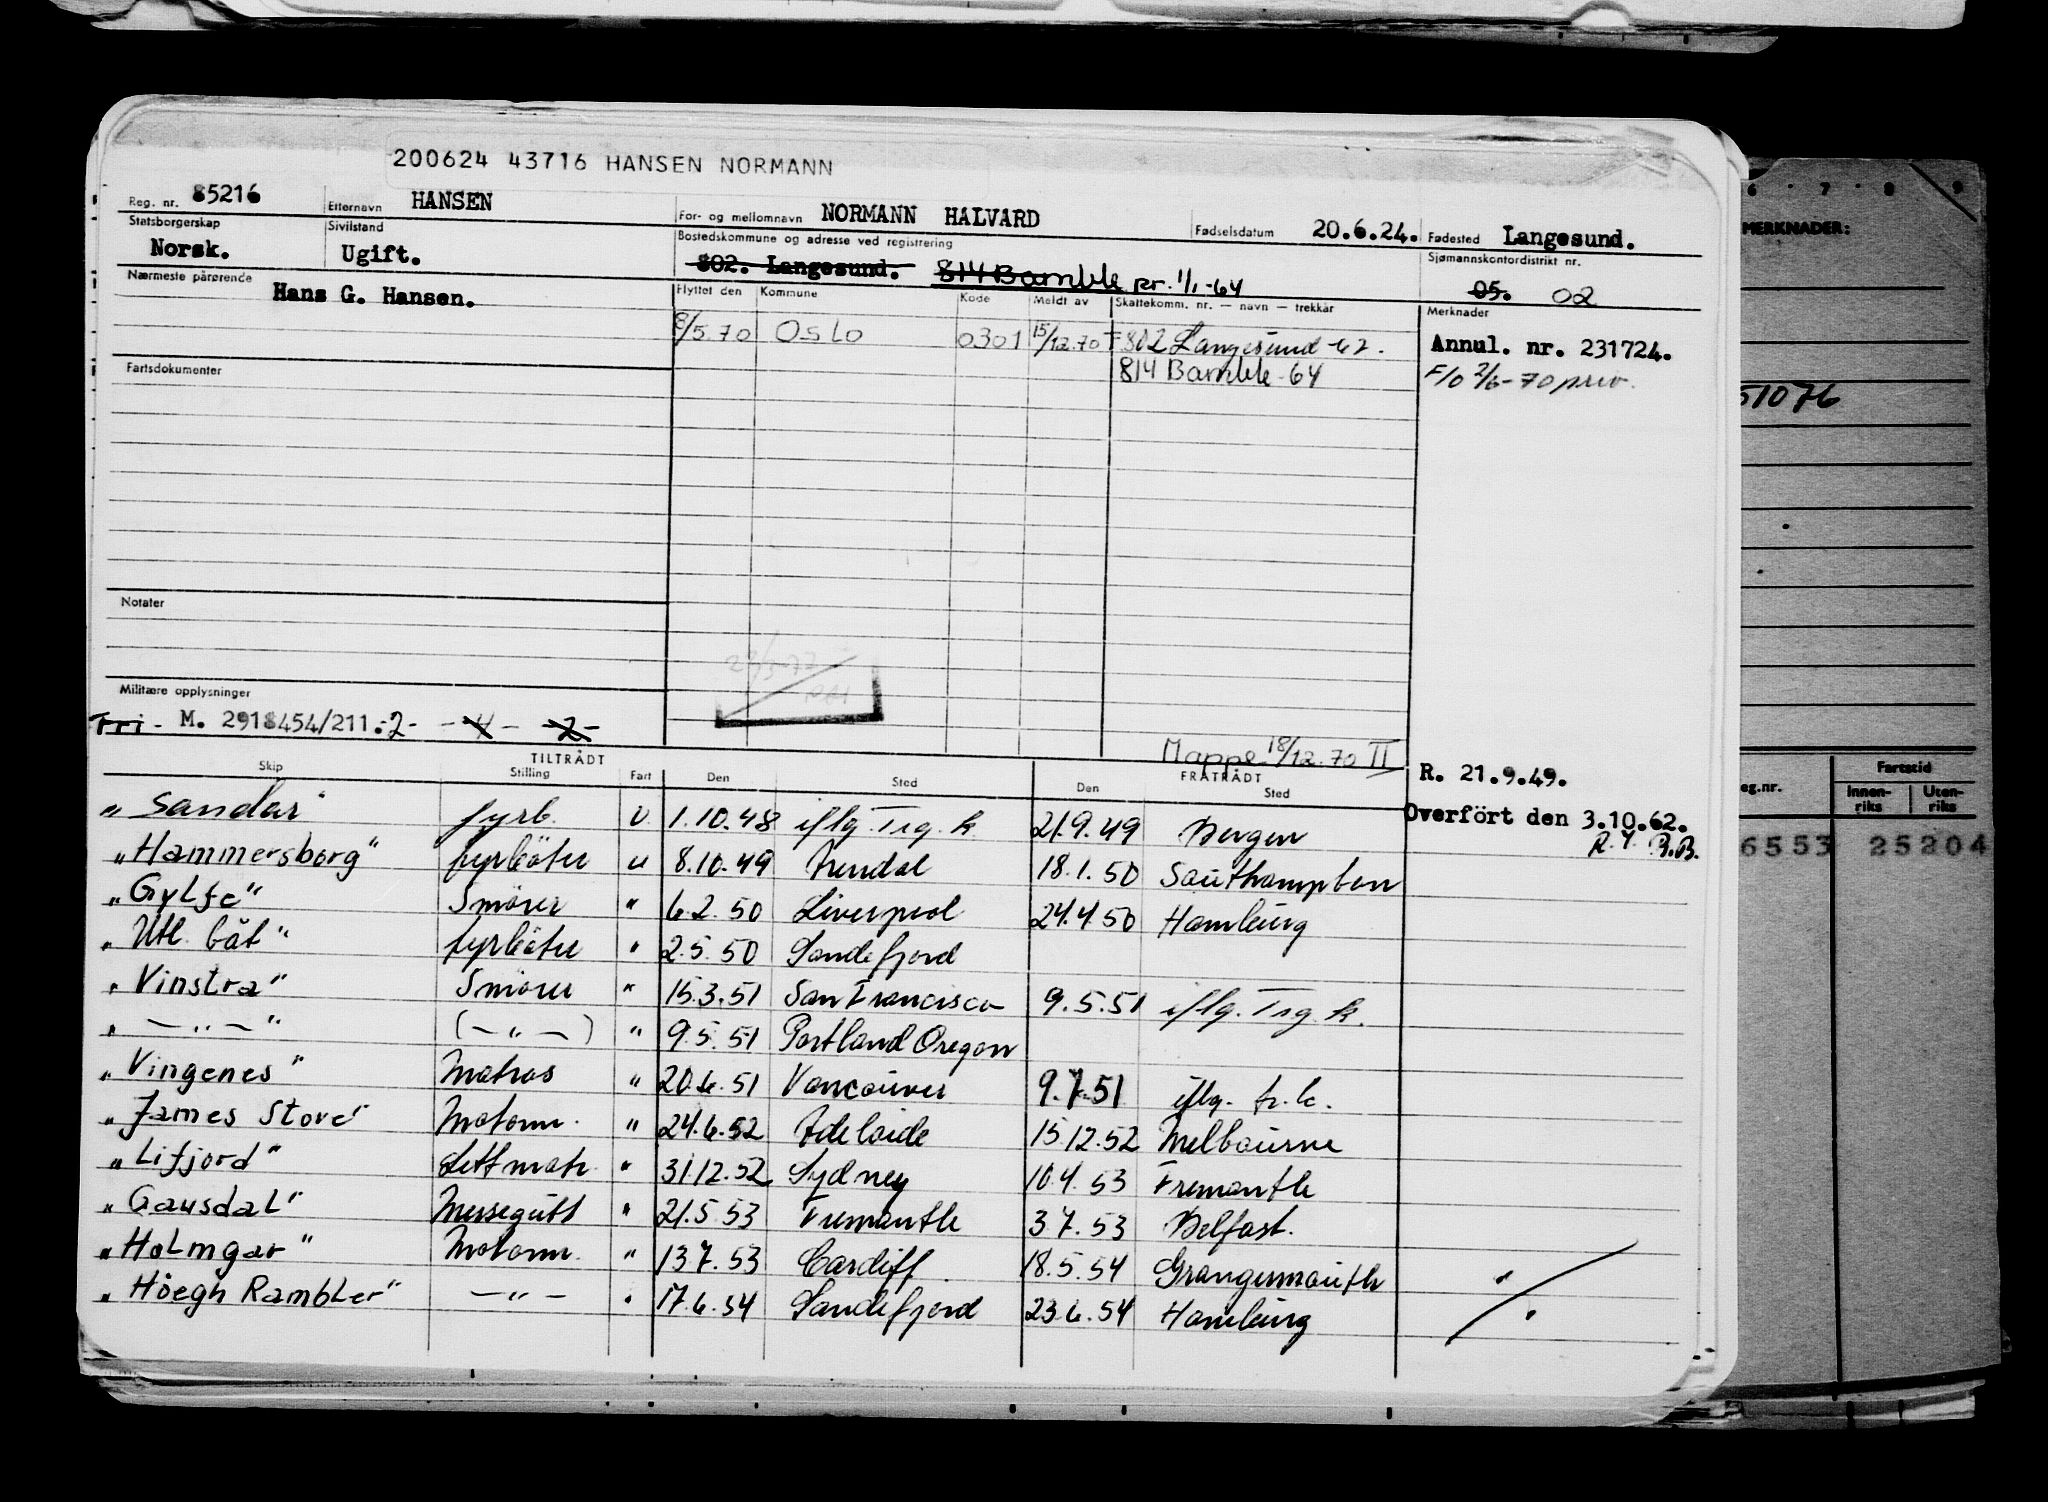 200624 43716 HANSEN NORMANN
Reg. nr. 85216 Etternavn HANSEN For- og mellomnavn NORMANN HALVARD Fødselsdatum 20.6.24. Fødested Langesund.
Statsborgerskap Norsk. Sivilstand Ugift. Bostedskommune og adresse ved registrering 802. Langesund. 814 Bamble pr. 1/1-64 Sjømannskontordistrikt nr. 05. 02
Nærmeste pårørende Hans G. Hansen.
Flyttet den Kommune Kode Meldt av Skattekomm. nr. — navn — trekkår Merknader
8/5.70 OSLO 0301 15/12.70 F 802 Langesund -62. Annul. nr. 231724.
814 Bamble-64 F/O 2/6-70 priv.
Fartsdokumenter
Notater
Militære opplysninger
Fri- M. 2918454/211.-2- -4- -2-
Mappe 18/12.70 II
TILTRÅDT FRATRÅDT R. 21.9.49.
Skip Stilling Fart Den Sted Den Sted
Overfört den 3.10.62.
R.Y. B.B.
"Sandar" fyrb. U 1.10.48 iflg. Trg. k. 21.9.49 Bergen
"Hammersborg" fyrböter u 8.10.49 Arendal 18.1.50 Southampton
"Gylfe" Smörer " 6.2.50 Liverpool 24.4.50 Hamburg
" Utl. båt " fyrböter " 2.5.50 Sandefjord
" Vinstra " Smörer " 15.3.51 San Francisco 9.5.51 iflg. Trg. k.
" — " — " (— " —) " 9.5.51 Portland Oregon
" Vingenes " Matros " 20.6.51 Vancouver 9.7.51 iflg. tr. k.
" James Stove " Motorm. " 24.6.52 Adelaide 15.12.52 Melbourne
" Lifjord " Lettmatr. " 31.12.52 Sydney 10.4.53 Fremantle
" Gausdal " Messegutt " 21.5.53 Fremantle 3.7.53 Belfast.
" Holmgar " Motorm. " 13.7.53 Cardiff 18.5.54 Grangemouth "
" Höegh Rambler " — " — " 17.6.54 Sandefjord 23.6.54 Hamburg "
6 7 8 9
MERKNADER:
51076
eg.nr. Fartstid
Innen-riks Uten-riks
6553 25204